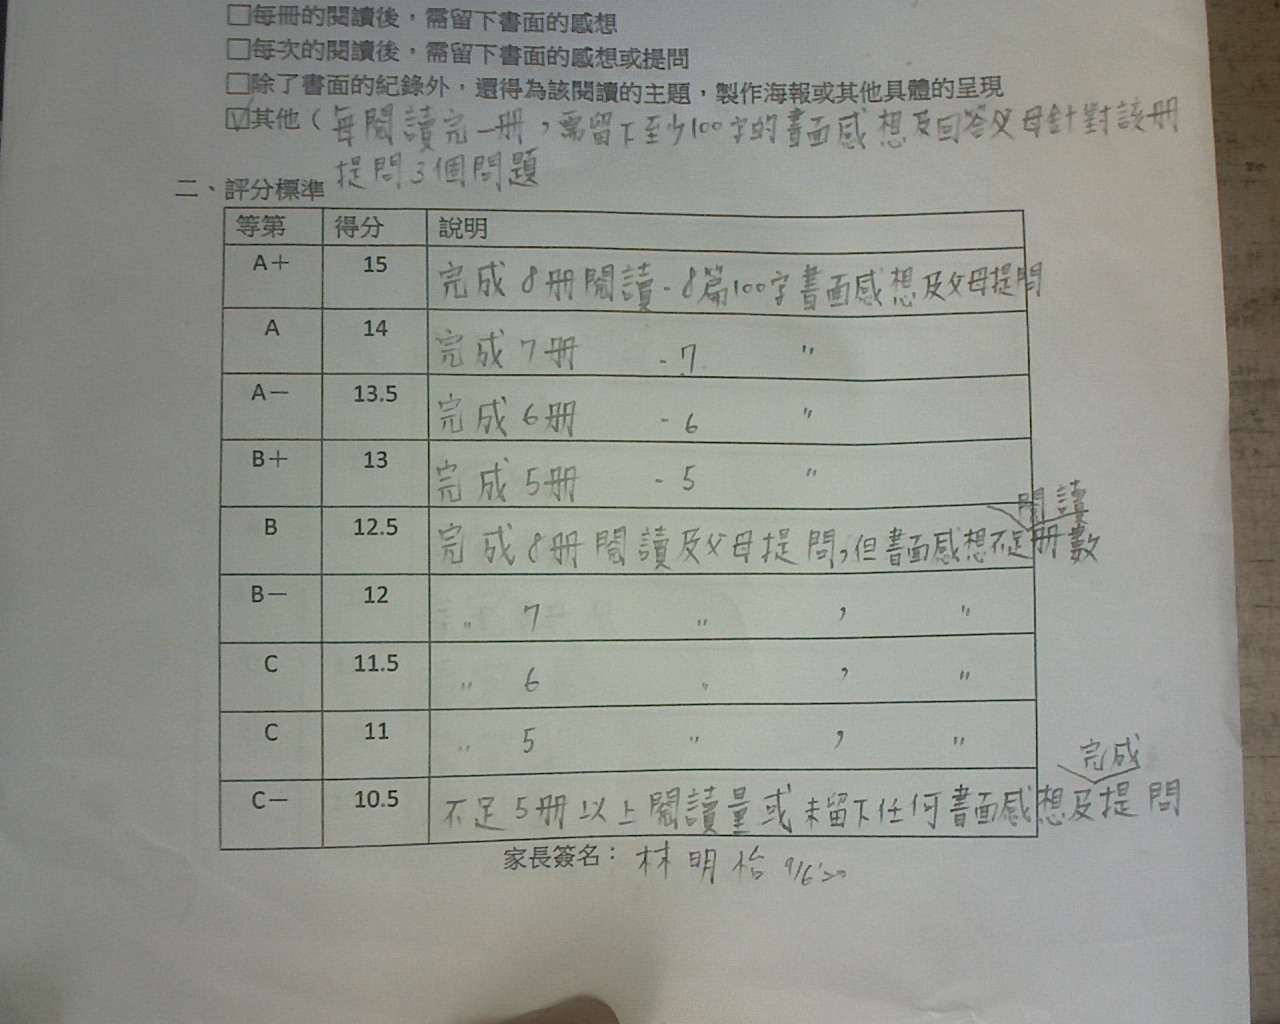 □每冊的閱讀後，需留下書面的感想
□每次的閱讀後，需留下書面的感想或提問
□除了書面的紀錄外，還得為該閱讀的主題，製作海報或其他具體的呈現
☑其他（每閱讀完一冊，需留下至少100字的書面感想及回答父母針對該冊
提問3個問題
二、評分標準
等第 得分 說明
A＋ 15 完成8冊閱讀-8篇100字書面感想及父母提問
A 14 完成7冊 -7 〃
A－ 13.5 完成6冊 -6 〃
B＋ 13 完成5冊 -5 〃
B 12.5 完成8冊閱讀及父母提問，但書面感想不足閱讀冊數
B－ 12 〃 7 〃 ， 〃
C 11.5 〃 6 〃 ， 〃
C 11 〃 5 〃 ， 〃
C－ 10.5 不足5冊以上閱讀量或未留下任何書面感想及完成提問
家長簽名： 林明怡 9/6'20